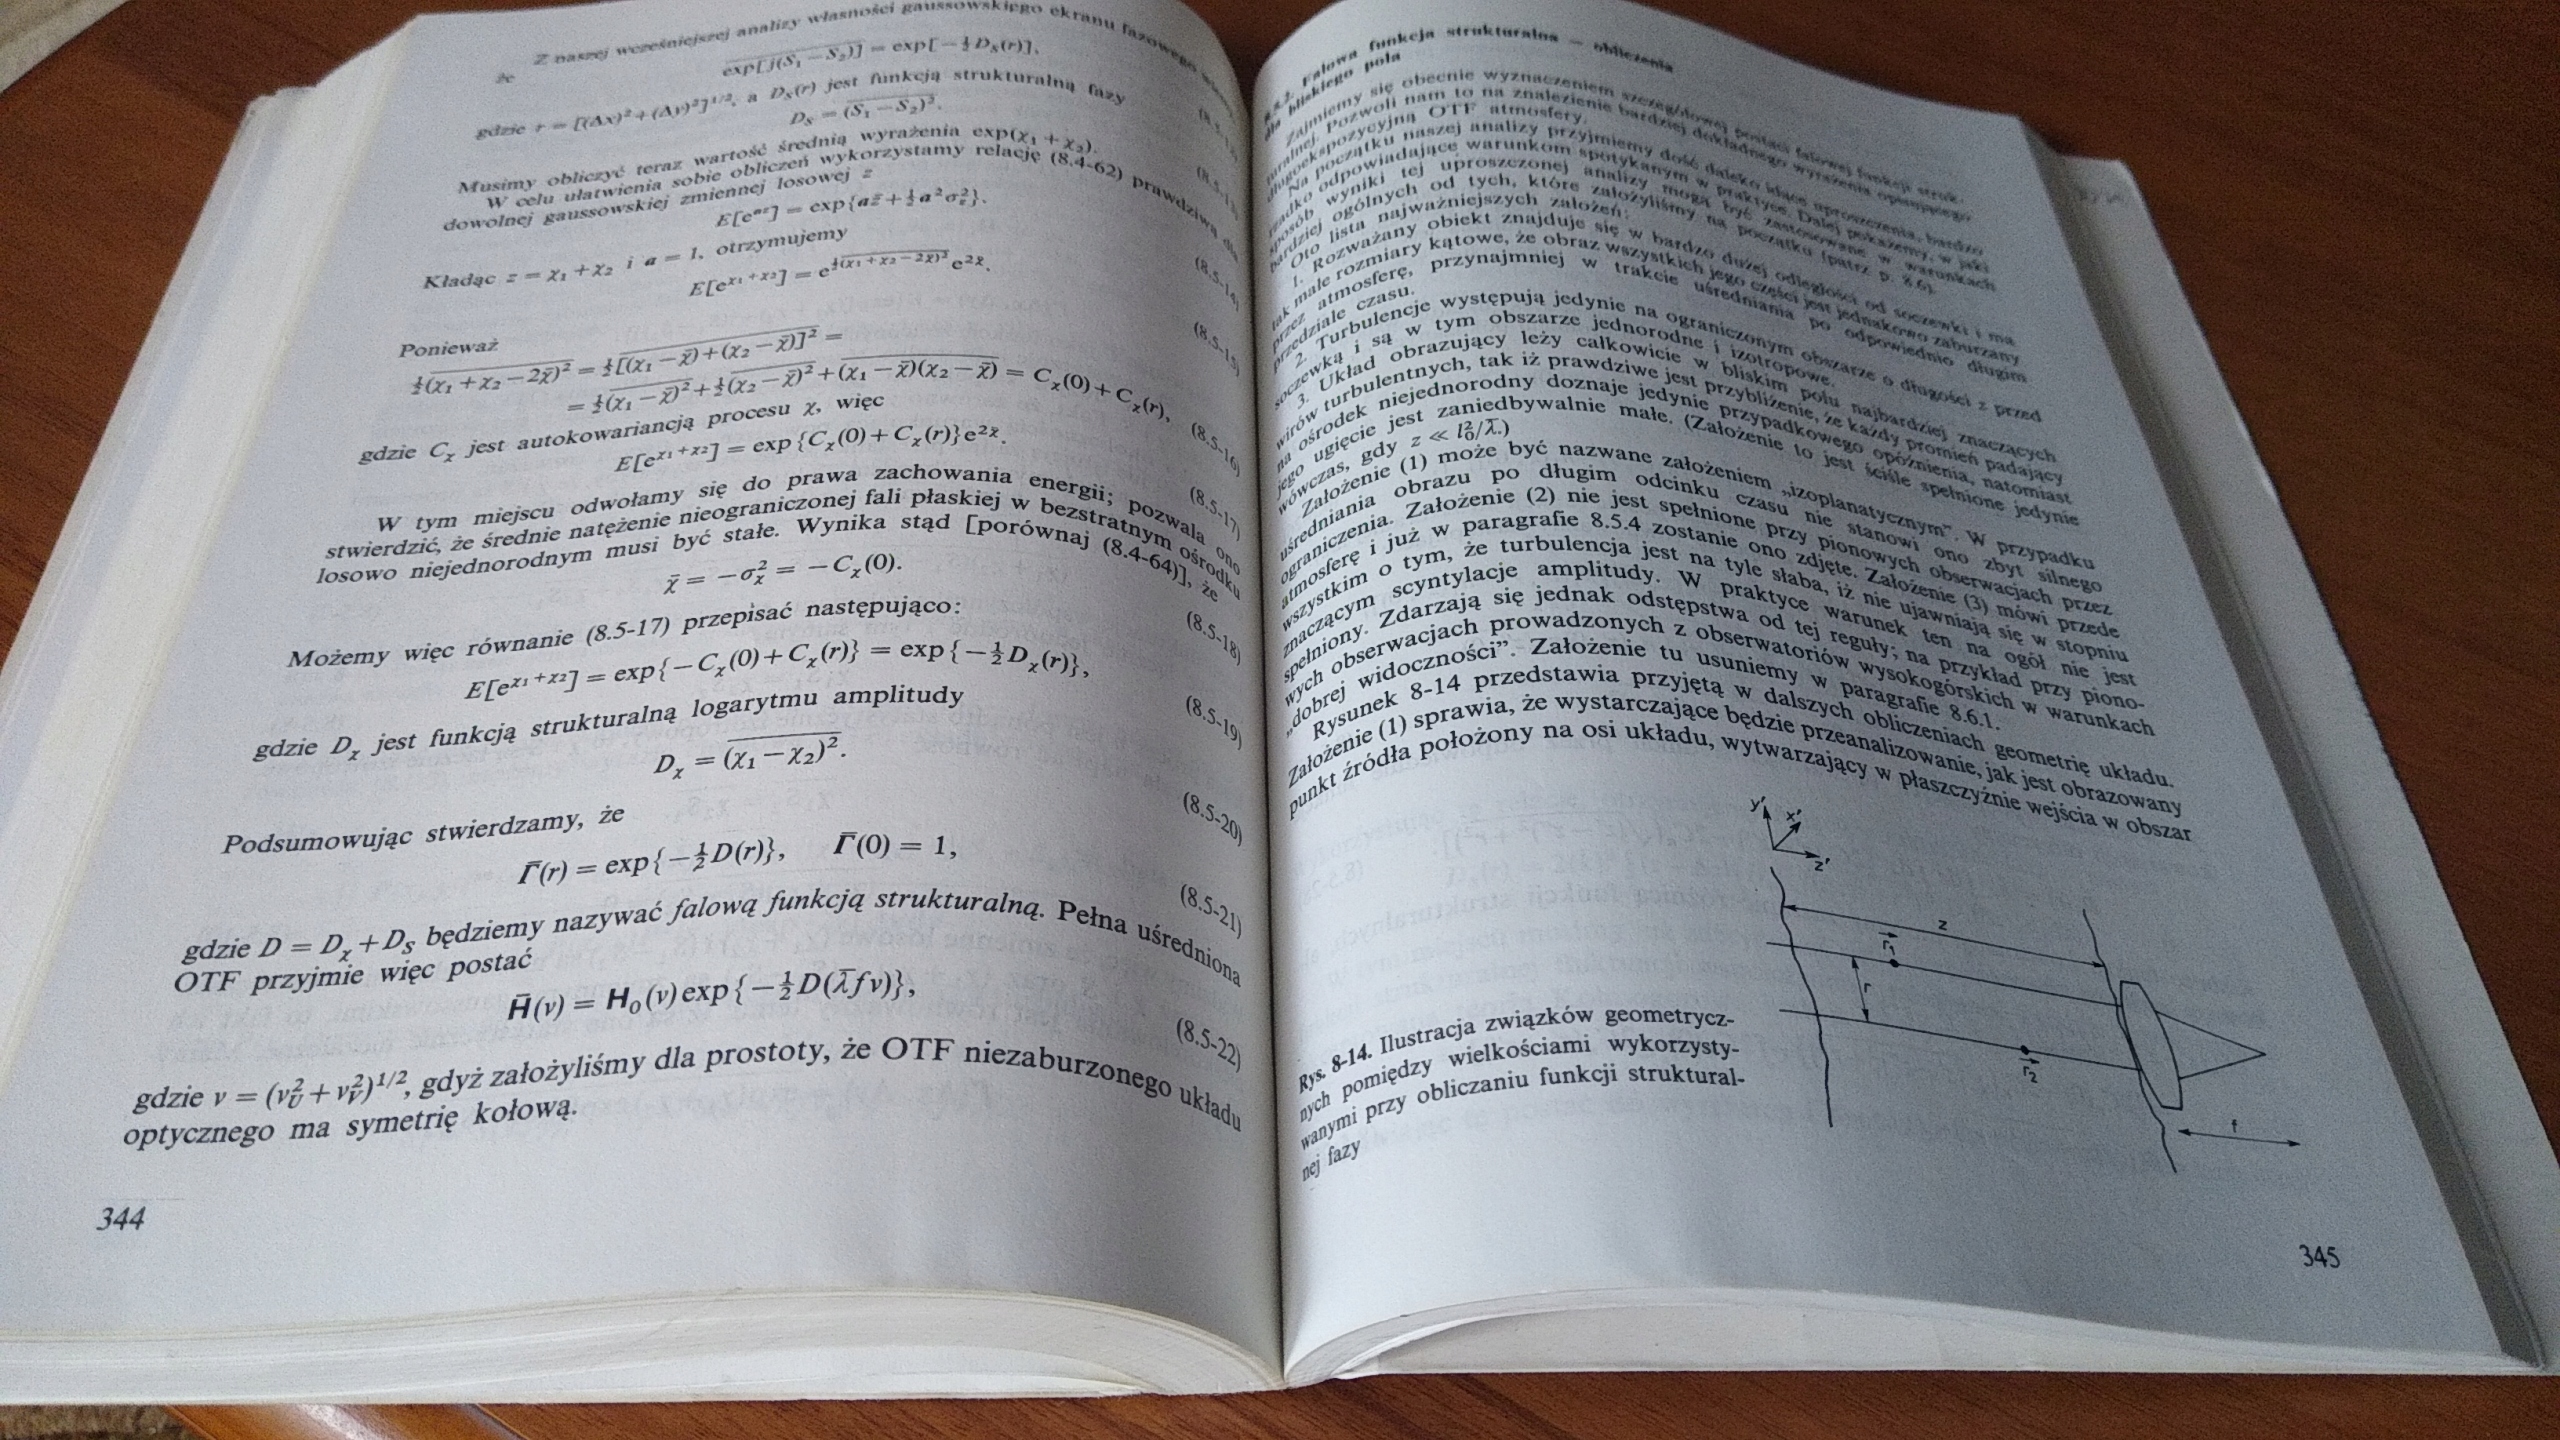 Z naszej wcześniejszej analizy własności gaussowskiego ekranu fazowego
że
exp[j(S₁ − S₂)] = exp[−½D_S(r)],
gdzie r = [(Δx)² + (Δy)²]^{1/2}, a D_S(r) jest funkcją strukturalną fazy
D_S = (S₁ − S₂)².
Musimy obliczyć teraz wartość średnią wyrażenia exp(χ₁ + χ₂).
W celu ułatwienia sobie obliczeń wykorzystamy relację (8.4-62) prawdziwą dla
dowolnej gaussowskiej zmiennej losowej z
E[e^{az}] = exp{az̄ + ½a²σ_z²}. (8.5-14)
Kładąc z = χ₁ + χ₂ i a = 1, otrzymujemy
E[e^{χ₁+χ₂}] = e^{½(χ₁+χ₂−2χ̄)²}e^{2χ̄}. (8.5-15)
Ponieważ
½(χ₁ + χ₂ − 2χ̄)² = ½[(χ₁ − χ̄) + (χ₂ − χ̄)]² =
= ½(χ₁ − χ̄)² + ½(χ₂ − χ̄)² + (χ₁ − χ̄)(χ₂ − χ̄) = C_χ(0) + C_χ(r), (8.5-16)
gdzie C_χ jest autokowariancją procesu χ, więc
E[e^{χ₁+χ₂}] = exp{C_χ(0) + C_χ(r)}e^{2χ̄}. (8.5-17)
W tym miejscu odwołamy się do prawa zachowania energii; pozwala ono
stwierdzić, że średnie natężenie nieograniczonej fali płaskiej w bezstratnym ośrodku
losowo niejednorodnym musi być stałe. Wynika stąd [porównaj (8.4-64)], że
χ̄ = −σ_χ² = −C_χ(0). (8.5-18)
Możemy więc równanie (8.5-17) przepisać następująco:
E[e^{χ₁+χ₂}] = exp{−C_χ(0) + C_χ(r)} = exp{−½D_χ(r)}, (8.5-19)
gdzie D_χ jest funkcją strukturalną logarytmu amplitudy
D_χ = (χ₁ − χ₂)². (8.5-20)
Podsumowując stwierdzamy, że
Γ̄(r) = exp{−½D(r)}, Γ̄(0) = 1, (8.5-21)
gdzie D = D_χ + D_S będziemy nazywać falową funkcją strukturalną. Pełna uśredniona
OTF przyjmie więc postać
H̄(ν) = H₀(ν)exp{−½D(λ̄fν)}, (8.5-22)
gdzie ν = (ν_U² + ν_V²)^{1/2}, gdyż założyliśmy dla prostoty, że OTF niezaburzonego układu
optycznego ma symetrię kołową.
344
8.5.2. Falowa funkcja strukturalna — obliczenia
dla bliskiego pola
Zajmiemy się obecnie wyznaczeniem szczegółowej postaci falowej funkcji struk-
turalnej. Pozwoli nam to na znalezienie bardziej dokładnego wyrażenia opisującego
długoekspozycyjną OTF atmosfery.
Na początku naszej analizy przyjmiemy dość daleko idące uproszczenia, bardzo
rzadko odpowiadające warunkom spotykanym w praktyce. Dalej pokażemy, w jaki
sposób wyniki tej uproszczonej analizy mogą być zastosowane w warunkach
bardziej ogólnych od tych, które założyliśmy na początku (patrz p. 8.6).
Oto lista najważniejszych założeń:
1. Rozważany obiekt znajduje się w bardzo dużej odległości od soczewki i ma
tak małe rozmiary kątowe, że obraz wszystkich jego części jest jednakowo zaburzany
przez atmosferę, przynajmniej w trakcie uśredniania po odpowiednio długim
przedziale czasu.
2. Turbulencje występują jedynie na ograniczonym obszarze o długości z przed
soczewką i są w tym obszarze jednorodne i izotropowe.
3. Układ obrazujący leży całkowicie w bliskim polu najbardziej znaczących
wirów turbulentnych, tak iż prawdziwe jest przybliżenie, że każdy promień padający
na ośrodek niejednorodny doznaje jedynie przypadkowego opóźnienia, natomiast
jego ugięcie jest zaniedbywalnie małe. (Założenie to jest ściśle spełnione jedynie
wówczas, gdy z ≪ l₀²/λ̄.)
Założenie (1) może być nazwane założeniem „izoplanatycznym”. W przypadku
uśredniania obrazu po długim odcinku czasu nie stanowi ono zbyt silnego
ograniczenia. Założenie (2) nie jest spełnione przy pionowych obserwacjach przez
atmosferę i już w paragrafie 8.5.4 zostanie ono zdjęte. Założenie (3) mówi przede
wszystkim o tym, że turbulencja jest na tyle słaba, iż nie ujawniają się w stopniu
znaczącym scyntylacje amplitudy. W praktyce warunek ten na ogół nie jest
spełniony. Zdarzają się jednak odstępstwa od tej reguły; na przykład przy piono-
wych obserwacjach prowadzonych z obserwatoriów wysokogórskich w warunkach
„dobrej widoczności”. Założenie tu usuniemy w paragrafie 8.6.1.
Rysunek 8-14 przedstawia przyjętą w dalszych obliczeniach geometrię układu.
Założenie (1) sprawia, że wystarczające będzie przeanalizowanie, jak jest obrazowany
punkt źródła położony na osi układu, wytwarzający w płaszczyźnie wejścia w obszar
y′
x′
z′
z
r⃗₁
r
r⃗₂
f
Rys. 8-14. Ilustracja związków geometrycz-
nych pomiędzy wielkościami wykorzysty-
wanymi przy obliczaniu funkcji struktural-
nej fazy
345